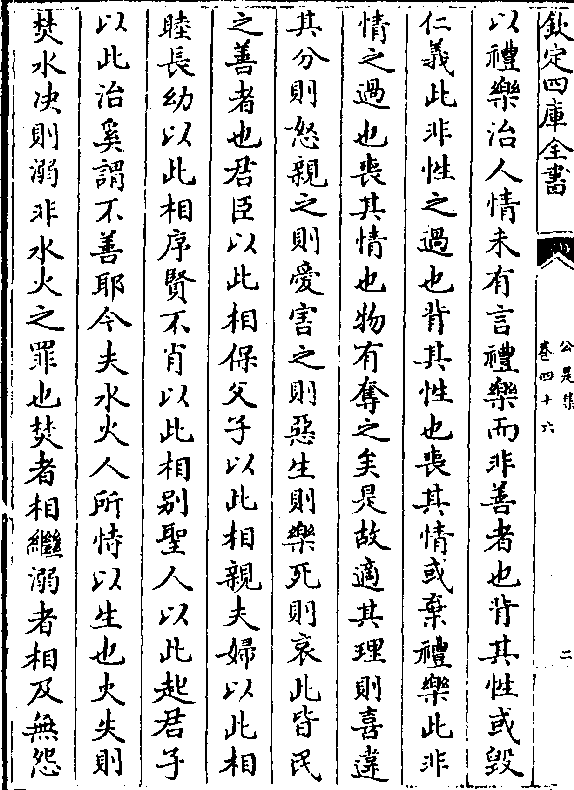 欽定四庫全書
公是集
卷四十六
二
以禮樂治人情未有言禮樂而非善者也背其性或毀
仁義此非性之過也背其性也喪其情或棄禮樂此非
情之過也喪其情也物有奪之矣是故適其理則喜違
其分則怒親之則愛害之則惡生則樂死則哀此皆民
之善者也君臣以此相保父子以此相親夫婦以此相
睦長幼以此相序賢不肖以此相别聖人以此起君子
以此治奚謂不善耶今夫水火人所恃以生也火失則
焚水决則溺非水火之罪也焚者相繼溺者相及無怨